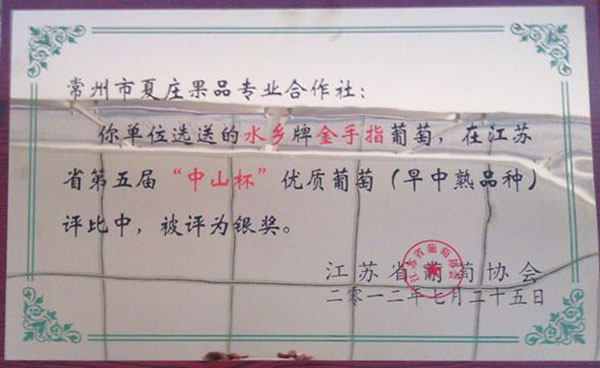 常州市夏庄果品专业合作社：
你单位选送的水乡牌金手指葡萄，在江苏
省第五届“中山杯”优质葡萄（早中熟品种）
评比中，被评为银奖。
江苏省葡萄协会
江苏省葡萄协会
二零一二年七月二十五日